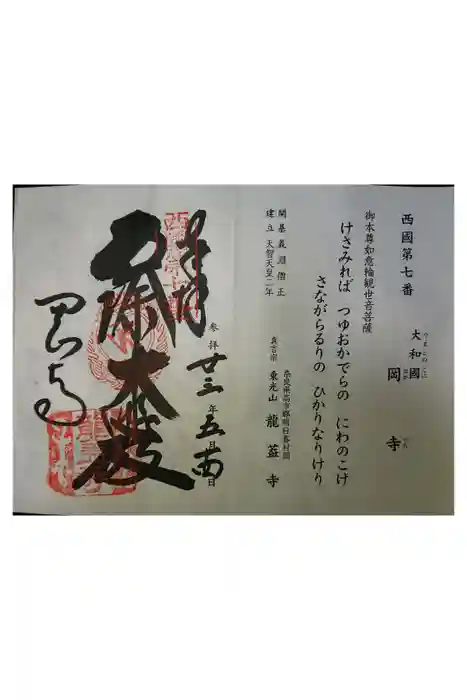 西國第七番
大和國 岡寺
やまとのくに おか でら
御本尊如意輪観世音菩薩
けさみれば つゆおかでらの にわのこけ
さながらるりの ひかりなりけり
開基 義淵僧正
建立 天智天皇二年
奈良県高市郡明日香村岡
真言宗 東光山 龍蓋寺
奉拝
参拝 廿三年五月廿四日
岡寺